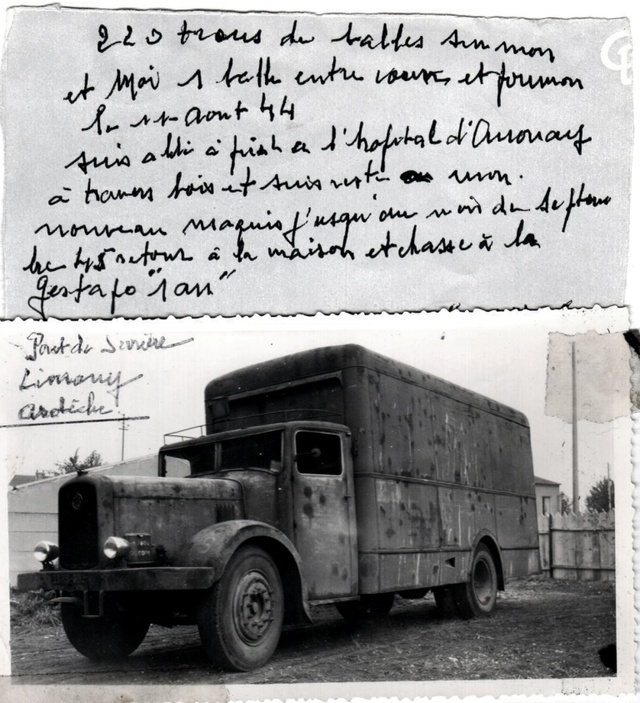 220 trous de balles sur mon
et Moi 1 balle entre coeur et poumon
le 11 Aout 44
suis allé à pied a l'hopital d'Annonay
à travers bois et suis resté au mon.
nouveau maquis j'usqu'au mois de Septem
bre 45 retour à la maison et chasse à la
Gestapo "1 an"
Pont de
Limony
Ardèche